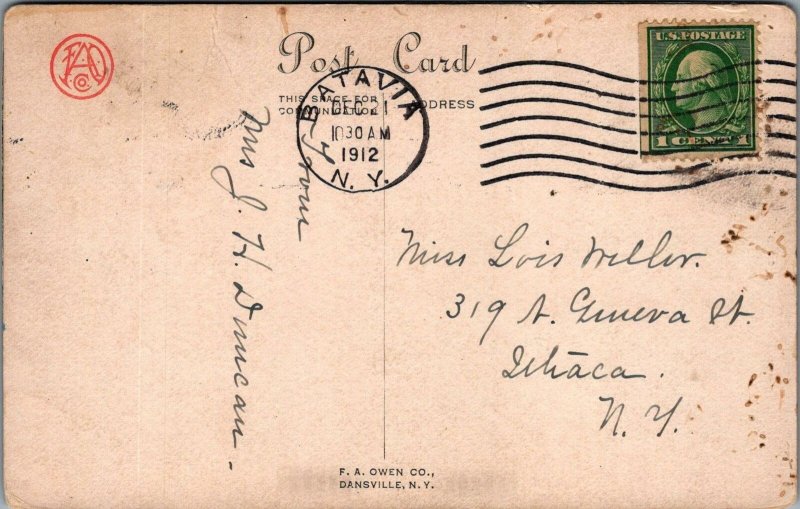 Post Card
THIS SPACE FOR
COMMUNICATION
ADDRESS
BATAVIA
DEC 21
1030 AM
1912
N. Y.
U.S. POSTAGE
1 CENT 1
From
Mrs J. H. Duncan -
Miss Lois Miller.
319 N. Geneva St.
Ithaca.
N. Y.
F. A. OWEN CO.,
DANSVILLE, N. Y.